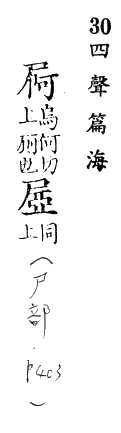 30四聲篇海
烏何切
上屙也
同上
(尸部.P403)